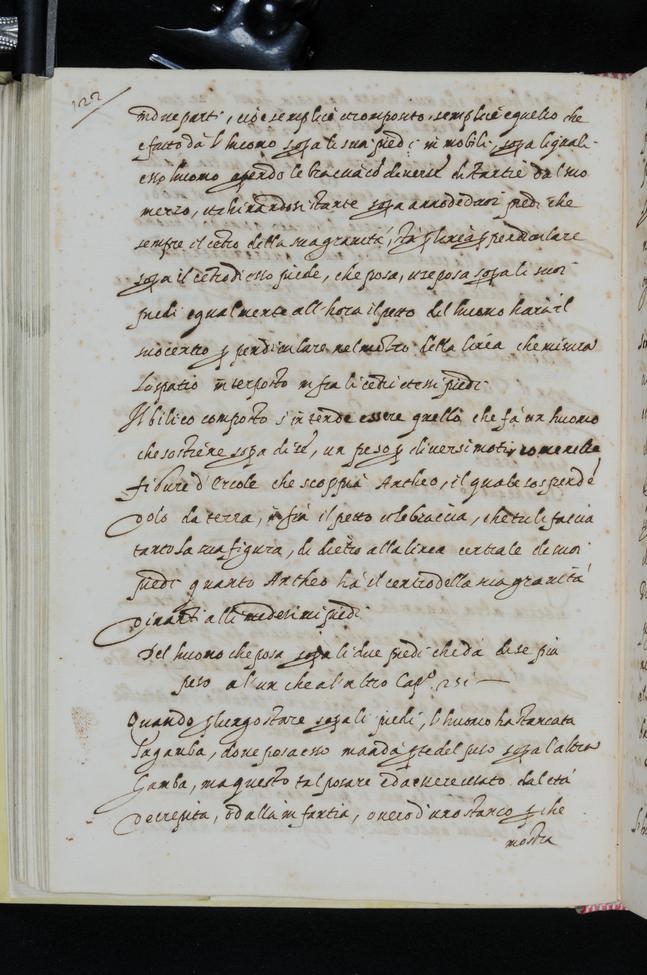 122
in due parti, cioè semplice et composto, semplice è quello che
è fatto dà l'huomo sopa li sua piedi in mobili, sopa li quali
esso huomo aprendo le braccia cō diverse distantie dal suo
mezzo, ò chinandosi stante sopa uno de duoi piedi che
sempre il cētro della sua gravità, stà p linea ppendiculare
sopa il cētro di esso piede, che posa, e se posa sopa li suoi
piedi egualmente all-hora il petto del huomo harà il
suo centro p perdiculare nel mezzo della linea che misura
lo spatio in terposto in fra li cētri et essi piedi
Il bilico composto s'in tende essere quello che fà un huomo
che sostiene sopa di sé, un peso p diversi moti, come nelle
figure d'Ercole che scoppia Antheo, il quale sospendē
dolo da terra, in frà il petto e le braccia, che tu li faccia
tanto la sua figura, di dietro alla linea centrale de suoi
piedi quanto Antheo hà il centro della sua gravità
dinanti alli medesimi piedi
Del huomo che posa sopa li due piedi che dà di se più
peso a l'un che al'altro Capº. 251
Quando p lungo stare sopa li piedi, l'huomo ha stancata
la gamba, dove posa esso manda pte del peso sopa l'altra
Gamba, ma questo tal posare è da essere usato dal età
decrepita, ò dalla in fantia, overo d'uno stanco p che
mostra